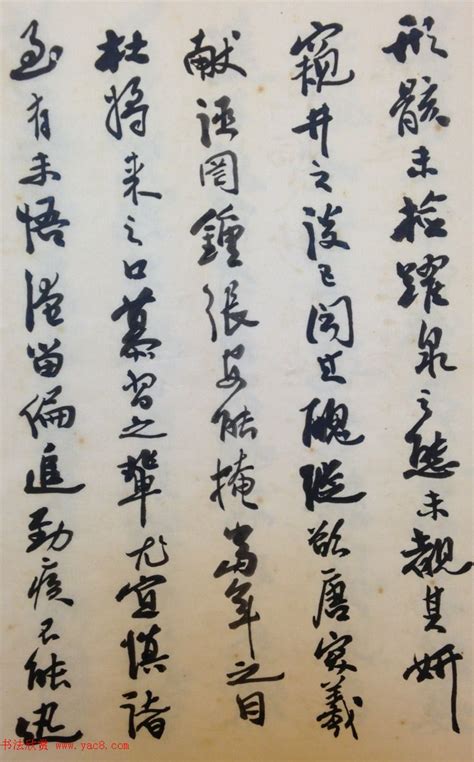 形骸未檢躍泉之態未覩其妍
窺井之談已聞其醜縱欲唐突羲
獻誣罔鍾張安能掩當年之目
杜將来之口慕習之輩尤宜慎諸
至有未悟淹留偏追勁疾不能迅
书法欣赏 www.yac8.com